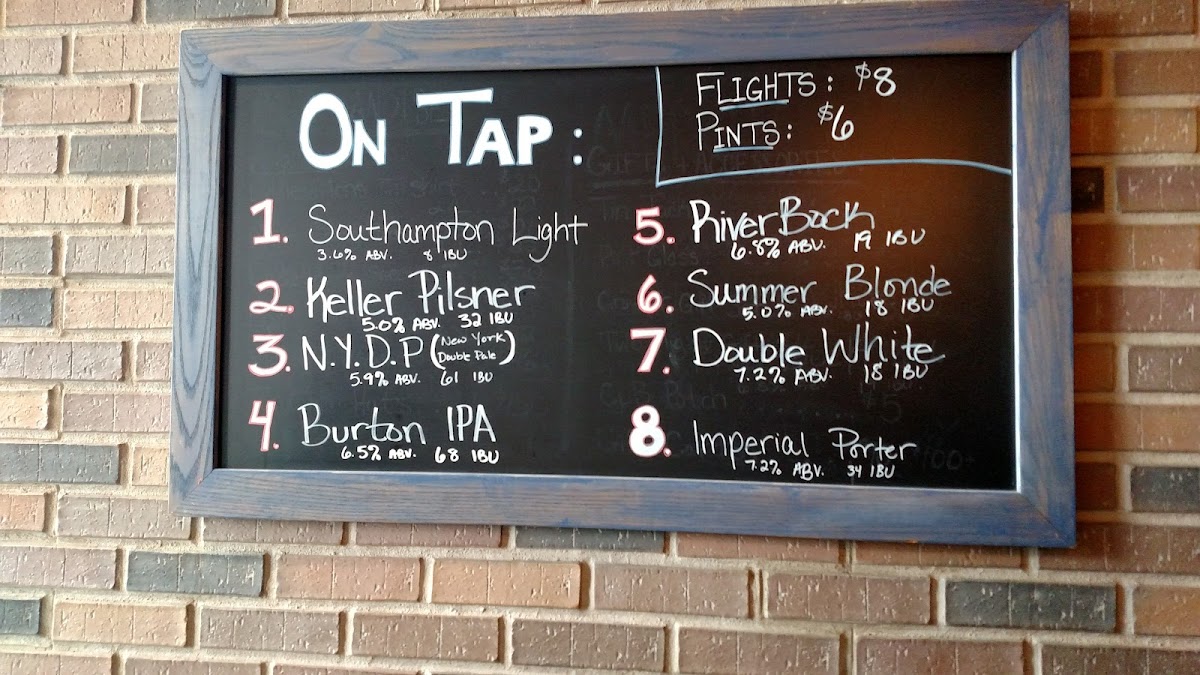 ON TAP:
FLIGHTS: $8
PINTS: $6
1. Southampton Light
3.6% ABV. 8 IBU
2. Keller Pilsner
5.0% ABV. 32 IBU
3. N.Y.D.P (New York Double Pale)
5.9% ABV. 61 IBU
4. Burton IPA
6.5% ABV. 68 IBU
5. River Bock
6.8% ABV. 19 IBU
6. Summer Blonde
5.0% ABV. 18 IBU
7. Double White
7.2% ABV. 18 IBU
8. Imperial Porter
7.2% ABV. 34 IBU